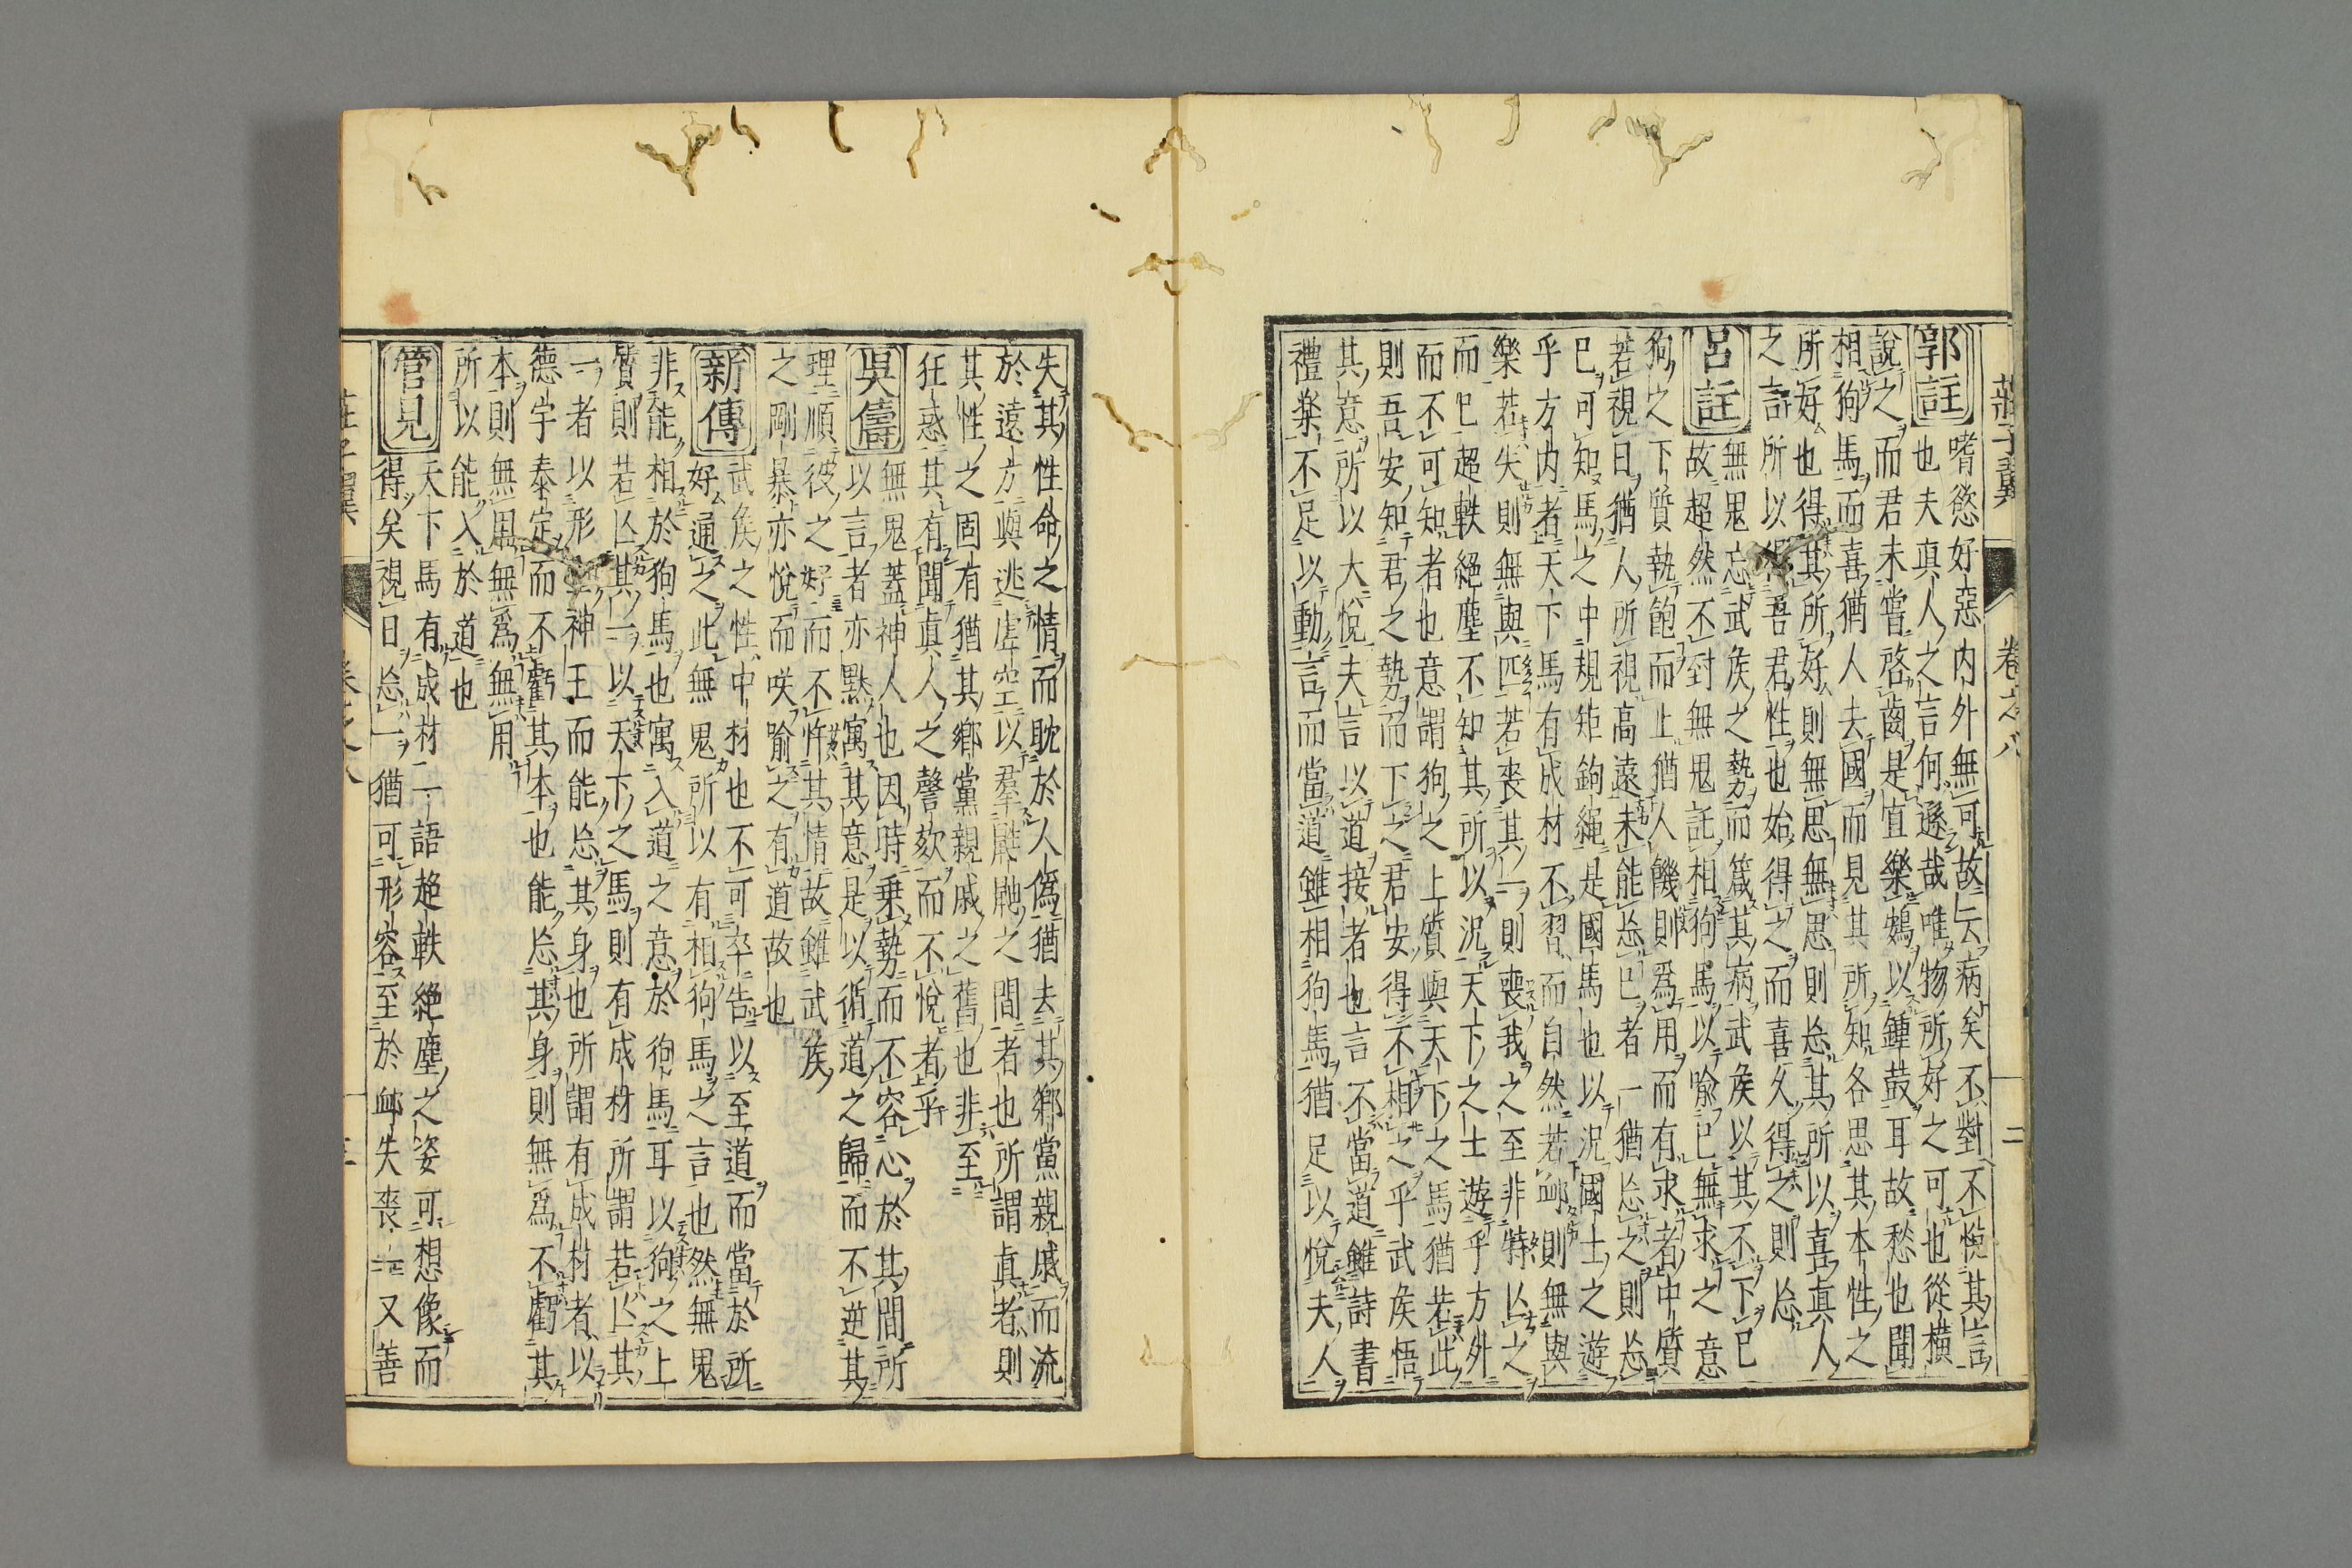 莊子翼 卷之八 二
郭註
嗜慾好惡内外無可故云病矣不對不悅其言
也夫真人之言何遜哉唯物所好之可也從橫
說之而君未嘗啓齒是直樂鴳以鍾鼓耳故愁也聞
相狗馬而喜猶人去國而見其所知各思其本性之
所好也得其所好則無思無思則忘其所以喜真人
之言所以得吾君性也始得之而喜久得之則忘
呂註
無鬼忘武侯之勢而箴其病武侯以其不下已
故超然不對無鬼託相狗馬以喻已無求之意
狗之下質執飽而止猶人饑則爲用而有求者中質
若視日猶人所視高遠未能忘已者一猶忘之則忘
已可知馬之中規矩鉤繩是國馬也以況國士之遊
乎方内者天下馬有成材不習而自然若䘏則無與
樂若失則無與匹若喪其一則喪我之至非特亾之
而已超軼絕塵不知其所以況天下之士遊乎方外
而不可知者也意謂狗之上質與天下之馬猶若此
則吾安知君之勢而下之君安得不相之乎武侯悟
其意所以大悅夫言以道接者也言不當道雖詩書
禮楽不足以動言而當道雖相狗馬猶足以悅夫人
失其性命之情而耽於人偽猶去其鄉黨親戚而流
於遠方與逃虛空以羣鼪鼬之間者也所謂真者則
其性之固有猶其鄉黨親戚之舊也非至
狂惑其有聞真人之謦欬而不悅者乎
吳儔
無鬼蓋神人也因時乗勢而不容心於其間所
以言者亦黙寓其意是以循道之歸而不逆其
理順彼之好而不忤其情故雖武侯
之剛暴亦悅而咲喻之有道故也
新傳
武侯之性中材也不可卒告以至道而當於所
好通之此無鬼所以有相狗馬之言也然無鬼
非能相於狗馬也寓入道之意於狗馬耳以狗之上
質則若亾其一以天下之馬則有成材所謂若亾其
一者以形神王而能忘其身也所謂有成材者以
德宇泰定而不虧其本也能忘其身則無爲不虧其
本則無無爲無用
所以能入於道也
管見
天下馬有成材一語超軼絕塵之姿可想像而
得矣視日忘一猶可形容至於䘏失喪一又善
莊子翼 卷之八 三